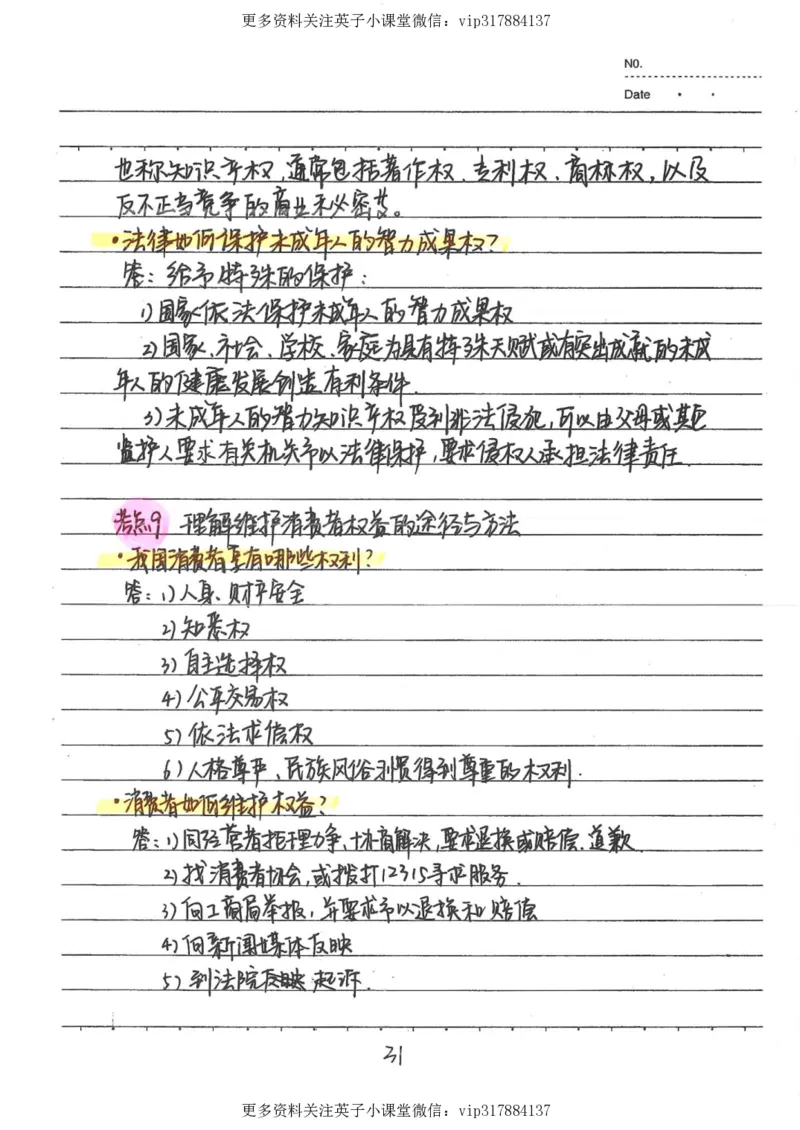 更多资料关注英子小课堂微信：vip317884137
NO.
Date
也称知识产权，通常包括著作权、专利权、商标权，以及
反不正当竞争的商业秘密等。
·法律如何保护未成年人的智力成果权？
答：给予特殊的保护：
1）国家依法保护未成年人的智力成果权
2）国家、社会、学校、家庭为具有特殊天赋或有突出成就的未成
年人的健康发展创造有利条件.
3）未成年人的智力知识产权受到非法侵犯，可以由父母或其它
监护人要求有关机关予以法律保护，要求侵权人承担法律责任.
考点9 理解维护消费者权益的途径与方法
·我国消费者享有哪些权利？
答：1）人身、财产安全
2）知悉权
3）自主选择权
4）公平交易权
5）依法求偿权
6）人格尊严、民族风俗习惯得到尊重的权利.
·消费者如何维护权益？
答：1）同经营者据理力争，协商解决，要求退换或赔偿、道歉.
2）找消费者协会，或拨打12315寻求服务.
3）向工商局举报，并要求予以退换和赔偿
4）向新闻媒体反映
5）到法院起诉.
31
更多资料关注英子小课堂微信：vip317884137